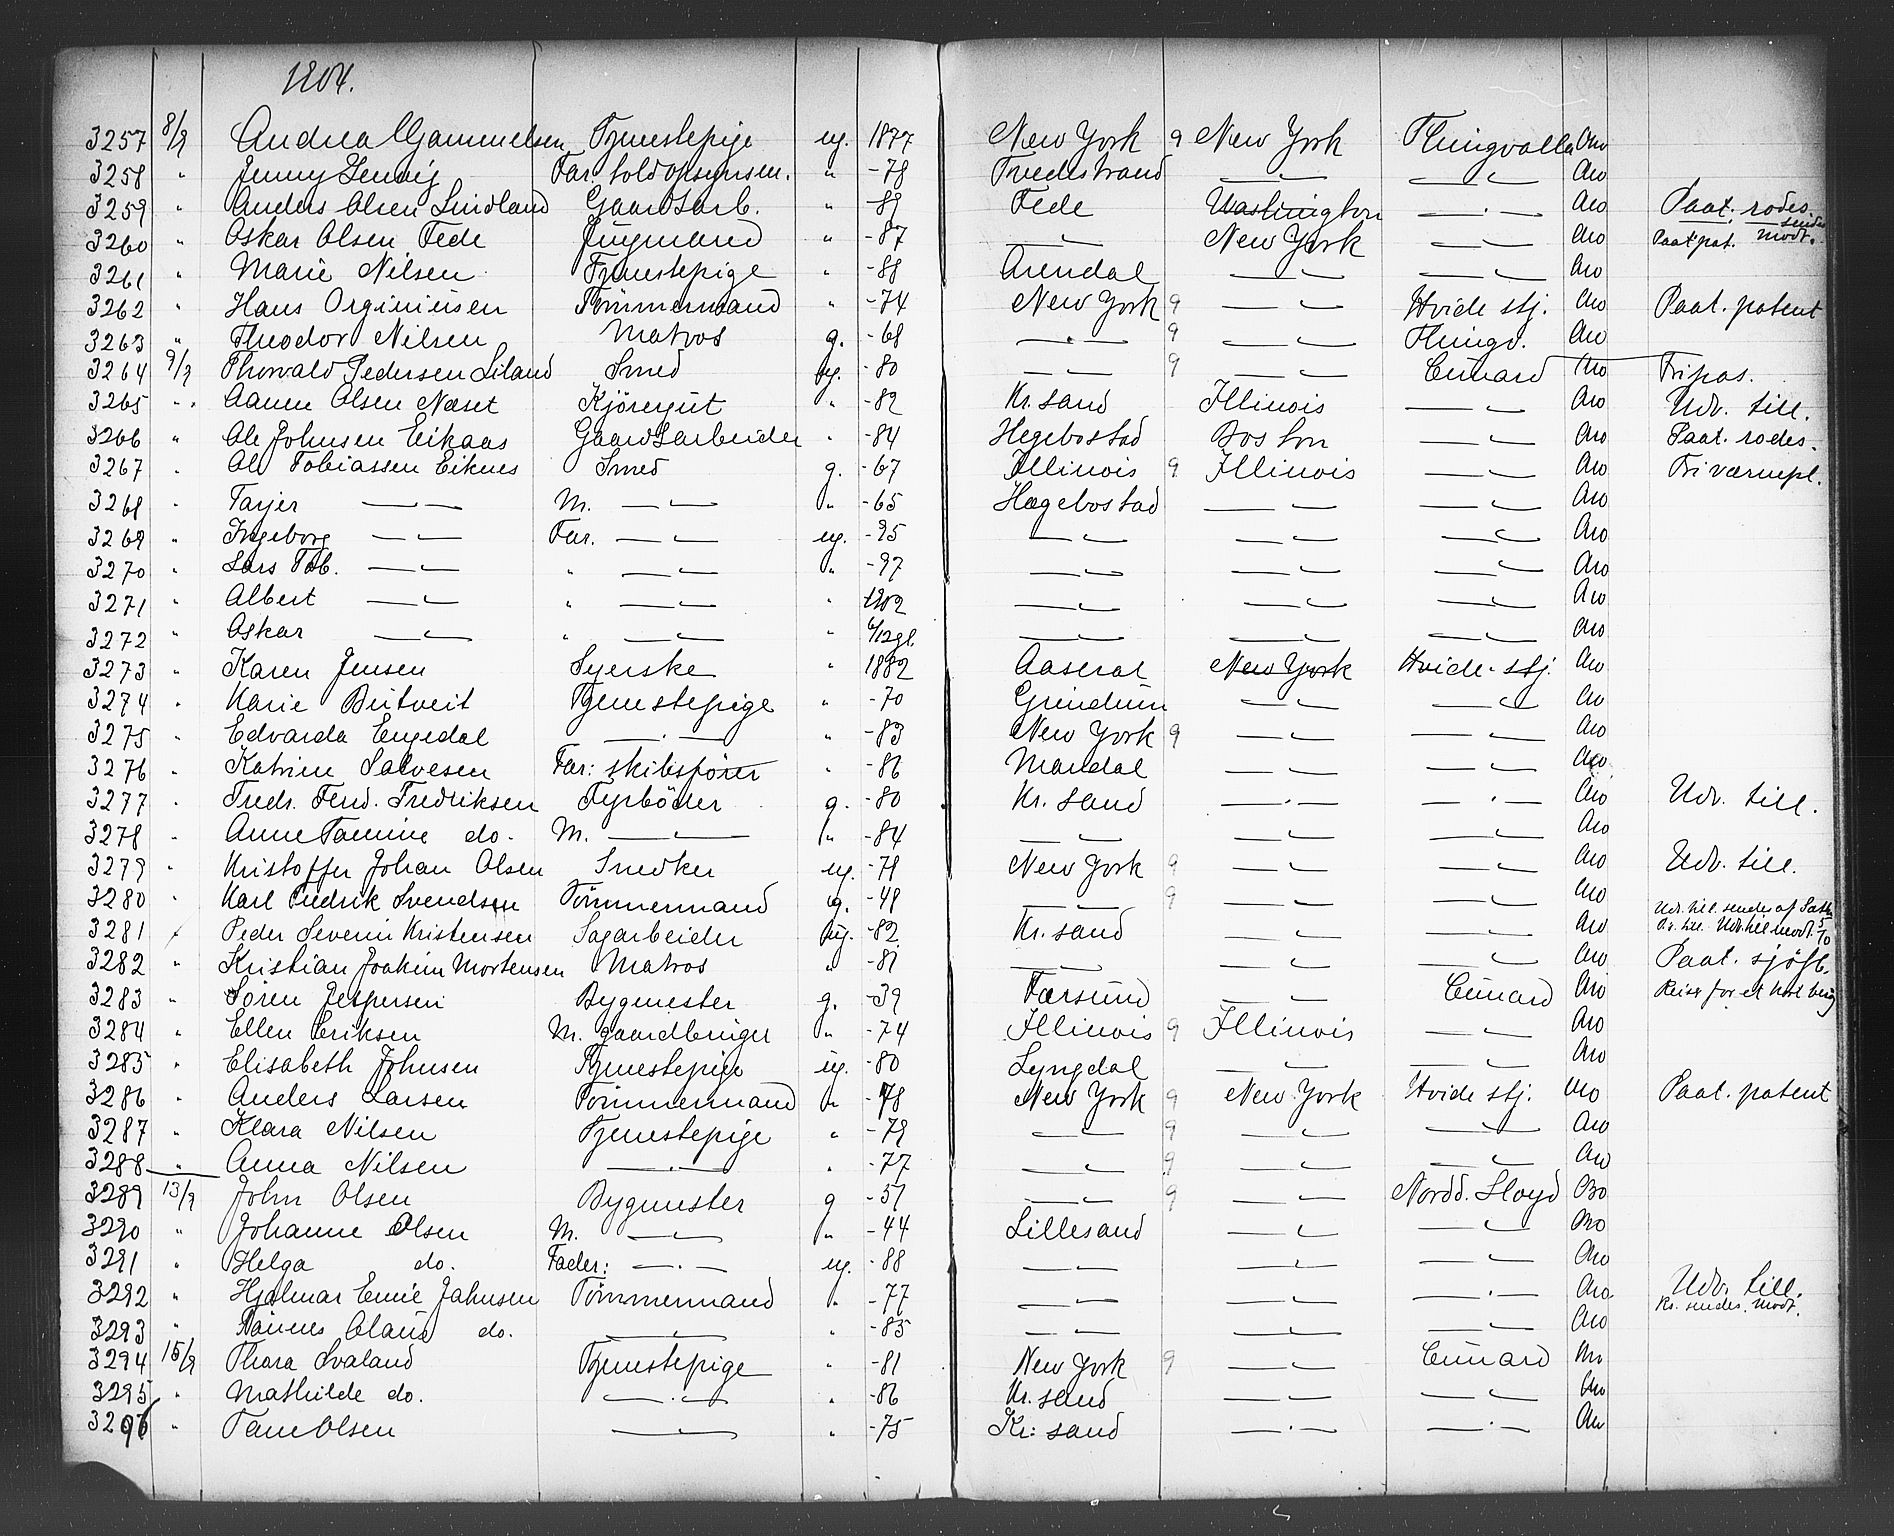 1904.
3257 8/9 Andrea Gammelsen Tjenestepige ug. 1877 New York 9 New York Thingvalla Aro
3258 " Jenny Far. toldopsynsm. " -78 Tvedestrand —"— —"— Aro
3259 " Anders Olsen Lindland Gaardsarb. " -89 Fede Washington —"— Aro Paat. rodes.
3260 " Oskar Olsen Fede Jungmand " -87 —"— New York —"— Aro Paat pat. sendes modt.
3261 " Marie Nilsen Tjenestepige " -88 Arendal —"— —"— Aro
3262 " Hans Tømmermand " -74 New York 9 —"— Hvide stj. Aro Paat. patent
3263 " Theodor Nilsen Matros g. -68 —"— 9 —"— Thingv. Aro
3264 9/9 Thorvald Pedersen Liland Smed ug. -80 —"— 9 —"— Cunard Aro Fripas.
3265 " Aanen Olsen Næset Kjøregut " -82 Kr. sand Illinois —"— Aro Udv. till.
3266 " Ole Johnsen Eikaas Gaardsarbeider " -84 Hegebostad Boston —"— Aro Paat. rodes.
3267 " Ole Tobiassen Eiknes Smed g. -67 Illinois 9 Illinois —"— Aro Fri værnepl.
3268 " Tarjer —"— M. —"— " -65 Hægebostad —"— —"— Aro
3269 " Ingeborg —"— Far. —"— ug. -95 —"— —"— —"— Aro
3270 " Lars Tob. —"— " —"— " -97 —"— —"— —"— Aro
3271 " Albert —"— " —"— " 1902 —"— —"— —"— Aro
3272 " Oskar —"— " —"— " 6/12 gl. —"— —"— —"— Aro
3273 " Karen Jensen Syerske " 1882 Aaseral New York Hvide stj. Aro
3274 " Marie Butveit Tjenestepige " -70 Grindum —"— —"— Aro
3275 " Edvarda Engedal —"— " -83 New York 9 —"— —"— Aro
3276 " Katrine Salvesen Far: skibsfører " -86 Mandal —"— —"— Aro
3277 " Fredr. Ferd. Fredriksen Fyrbøder g. -80 Kr. sand —"— —"— Aro Udv. till.
3278 " Anne Tomine do. M. —"— " -84 —"— —"— —"— Aro
3279 " Kristoffer Johan Olsen Snedker ug. -78 New York 9 —"— —"— Aro Udv. till.
3280 " Karl Fredrik Svendsen Tømmermand g. -48 —"— 9 —"— —"— Aro
3281 " Peder Severin Kristensen Sagarbeider ug. -82 Kr. sand —"— —"— Aro Udv. till. sendes af
3282 " Kristian Joakim Mortensen Matros " -81 —"— —"— —"— Aro Paat. sjøfb.
3283 " Søren Jespersen Bygmester g. -39 Farsund —"— Cunard Aro Reise for et kort
3284 " Ellen Eriksen M. gaardbruger " -74 Illinois 9 Illinois —"— Aro
3285 " Elisabeth Johnsen Tjenestepige ug. -80 Lyngdal —"— —"— Aro
3286 " Anders Larsen Tømmermand " -78 New York 9 New York Hvide stj. Aro Paat. patent
3287 " Klara Nilsen Tjenestepige " -79 —"— 9 —"— —"— Aro
3288 " Anna Nilsen —"— " -77 —"— 9 —"— —"— Aro
3289 13/9 John Olsen Bygmester g -51 —"— 9 —"— Nordd. Lloyd Bo
3290 " Johanne Olsen M. —"— " -44 Lillesand —"— —"— Aro
3291 " Helga do. Fader: —"— ug. -88 —"— —"— —"— Aro
3292 " Hjalmar Emil Jahnsen Tømmermand " -77 —"— —"— —"— Aro Udv. till.
3293 " Hannes Olaus do. —"— " -85 —"— —"— —"— Aro Kv. sendes. modt.
3294 15/9 Thora Svaland Tjenestepige " -81 New York 9 —"— Cunard Aro
3295 " Mathilde do. —"— " -86 Kr. sand —"— —"— Aro
3296 " Tane Olsen —"— " -75 Kr: sand —"— —"— Aro